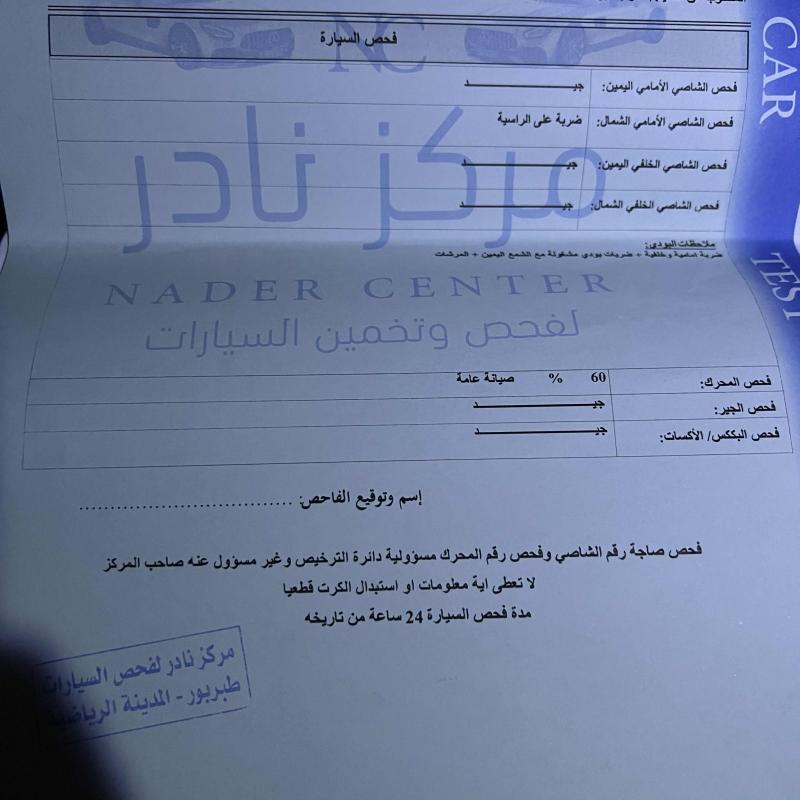 فحص السيارة
فحص الشاصي الأمامي اليمين: جيــــــــد
فحص الشاصي الأمامي الشمال: ضربة على الراسية
فحص الشاصي الخلفي اليمين: جيــــــــد
فحص الشاصي الخلفي الشمال: جيــــــــد
ملاحظات البودي:
ضربة امامية وخلفية + ضربات بودي مشغولة مع الشمع اليمين + المرشات
فحص المحرك: 60 % صيانة عامة
فحص الجير: جيــــــــد
فحص البككس/ الأكسات: جيــــــــد
إسم وتوقيع الفاحص: ..................................
فحص صاجة رقم الشاصي وفحص رقم المحرك مسؤولية دائرة الترخيص وغير مسؤول عنه صاحب المركز
لا تعطى اية معلومات او استبدال الكرت قطعيا
مدة فحص السيارة 24 ساعة من تاريخه
مركز نادر لفحص السيارات
طبربور - المدينة الرياضية
NC
مركز نادر
NADER CENTER
لفحص وتخمين السيارات
CAR
TEST